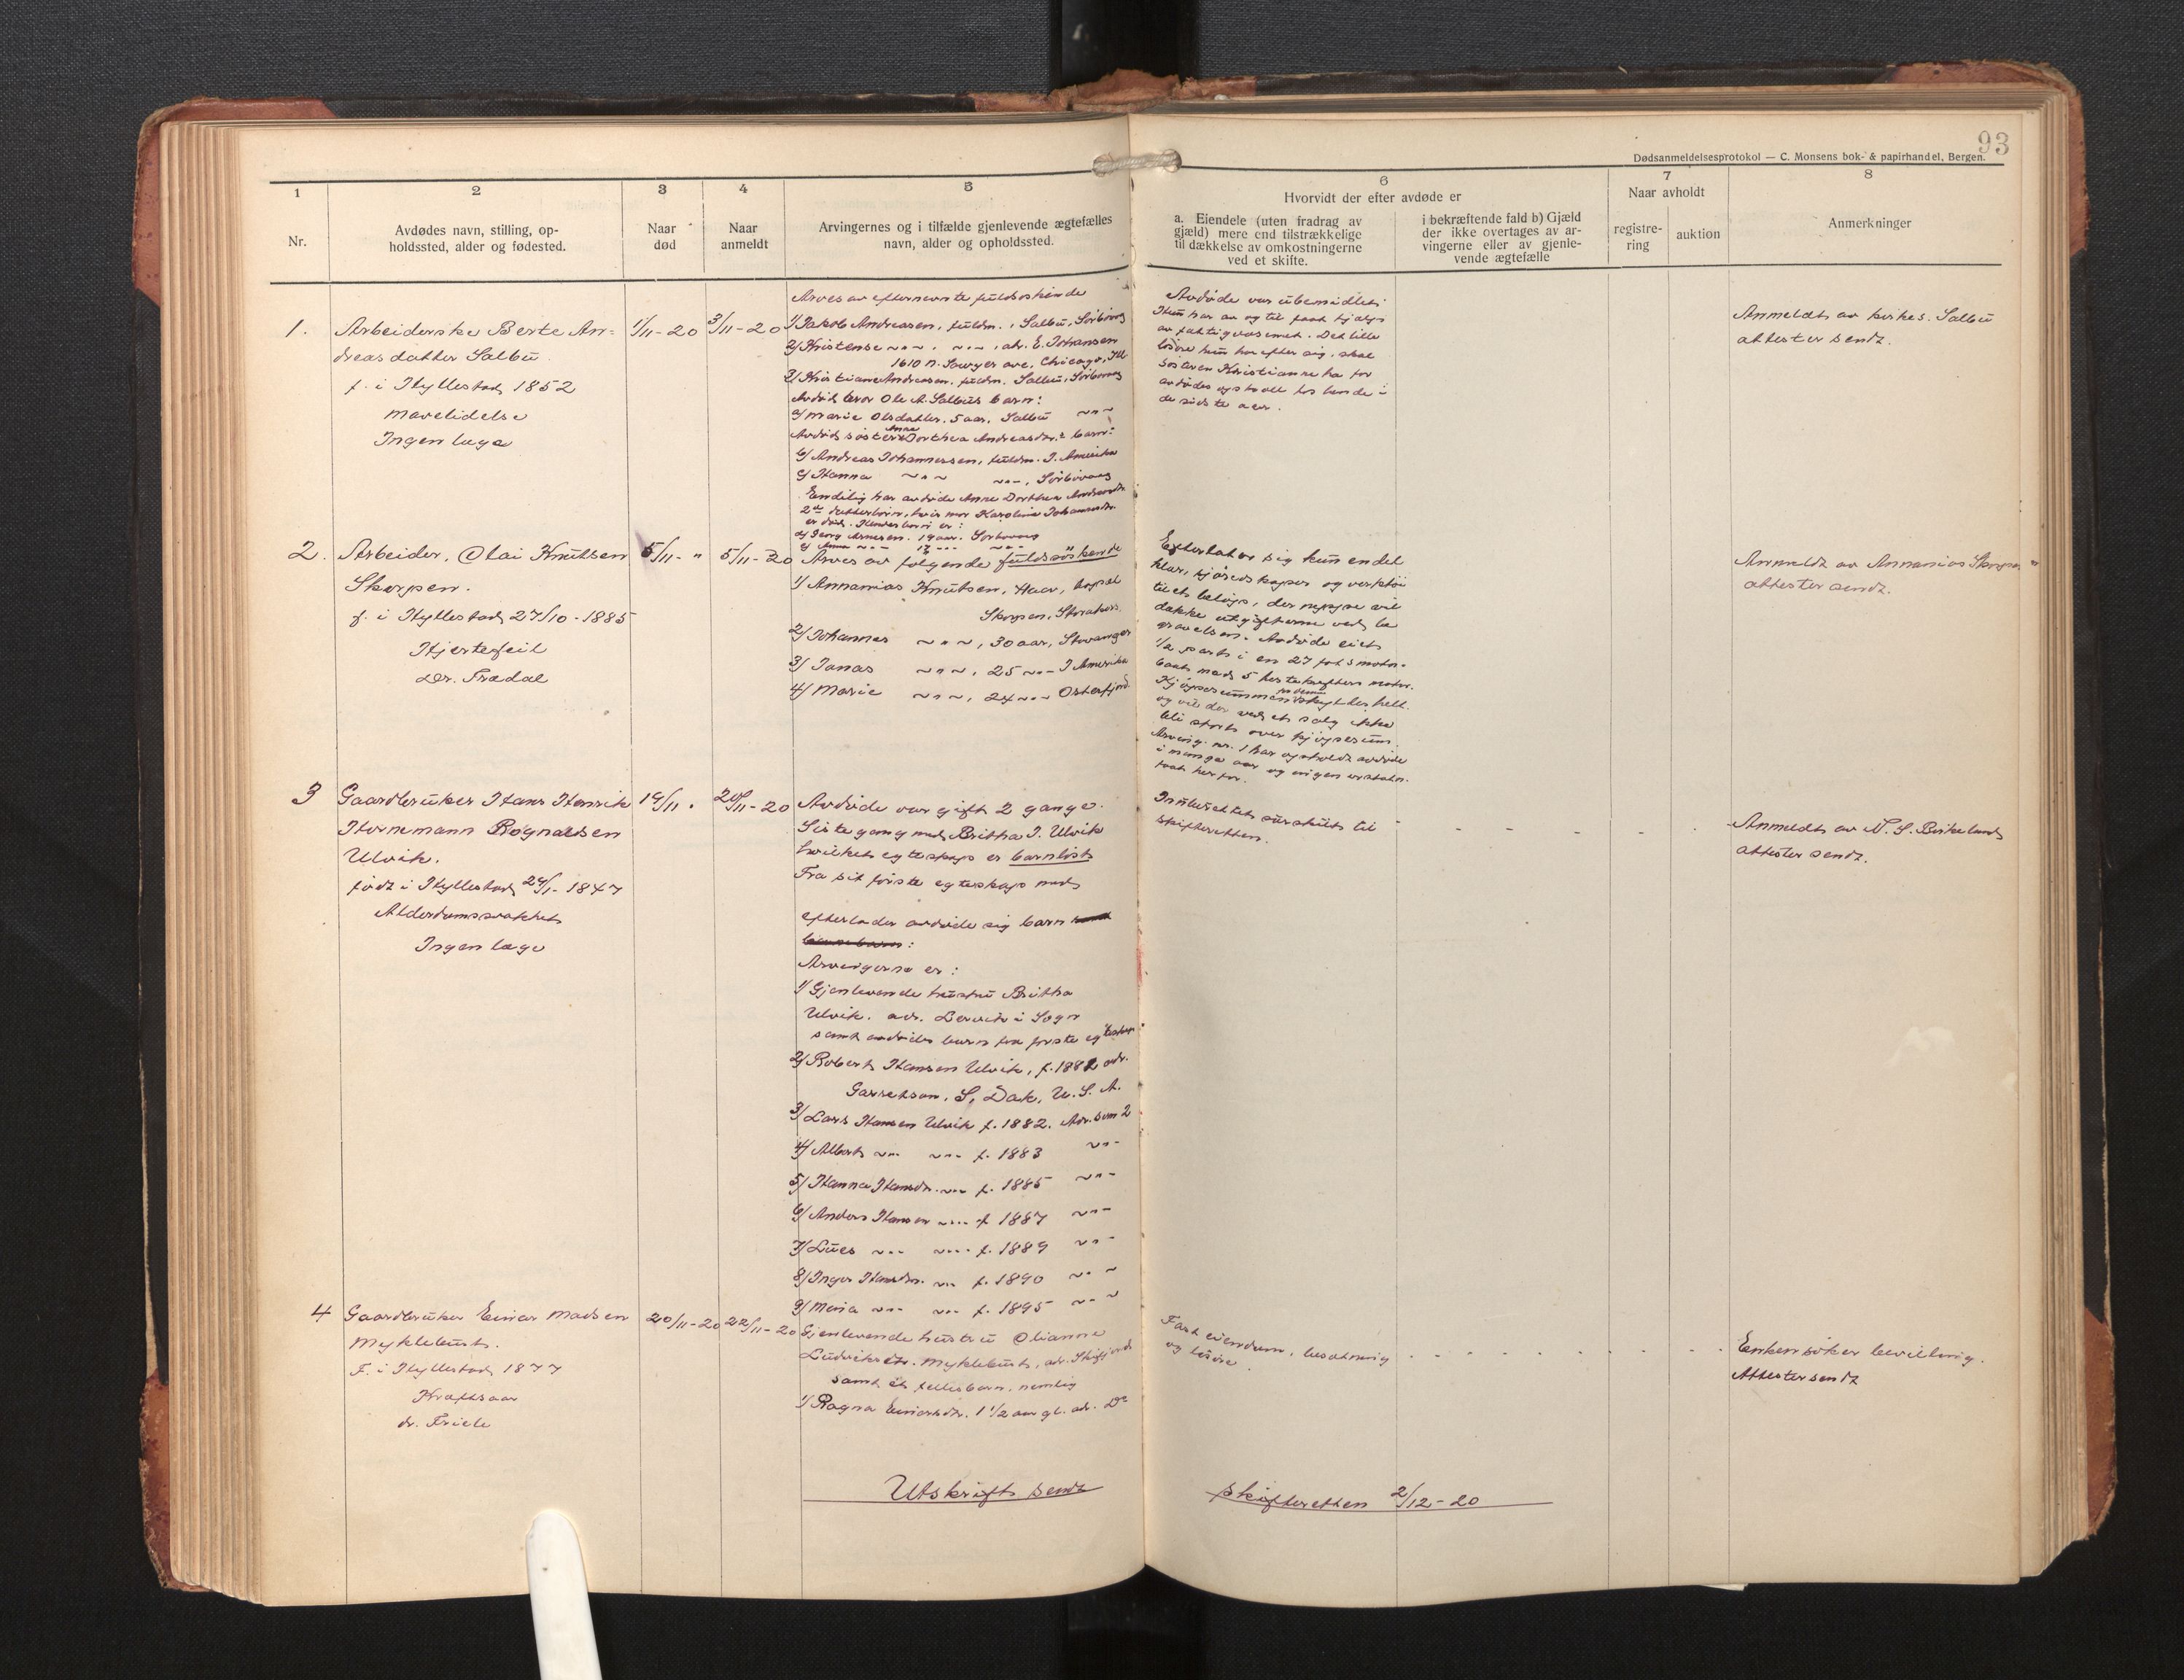 93
Dødsanmeldelsesprotokol — C. Monsens bok- & papirhandel, Bergen.
1
Nr.
2
Avdødes navn, stilling, op-
holdssted, alder og fødested.
3
Naar
død
4
Naar
anmeldt
5
Arvingernes og i tilfælde gjenlevende ægtefælles
navn, alder og opholdssted.
6
Hvorvidt der efter avdøde er
a. Eiendele (uten fradrag av
gjæld) mere end tilstrækkelige
til dækkelse av omkostningerne
ved et skifte.
i bekræftende fald b) Gjæld
der ikke overtages av ar-
vingerne eller av gjenle-
vende ægtefælle
7
Naar avholdt
registre-
ring
auktion
8
Anmerkninger
1.
Arbeiderske Berte An-
dreasdatter Salbu
f. i Hyllestad 1852
Mavelidelse
Ingen læge
1/11-20
3/11-20
Arves av efternevnte fuldsøskende
1/ Jakob Andreasen, fuldm., Salbu, Sørbøvaag
2/ Kristense ~"~ . ~"~, adr. E. Johansen
1610 N. Sawyer ave, Chicago, Ill
3/ Kristiane Andreasen. fuldm. Salbu, Sørbøvaag
Avdød bror Ole A. Salbus barn:
a/ Marie Olsdatter. 5 aar. Salbu ~"~
Avdød søster Anne Dorthea Andreasdr.s barn:
b/ Andreas Johannessen, fuldm. I Amerika
c/ Hanna ~"~ ~"~, Sørbøvaag
Endelig har avdøde Anne Dorthea Andreasdr.
2de datterbørn, hvis mor Karoline Johannesdr.
er død. Hendes børn er:
d/ Georg Arnesen. 19 aar. Sørbøvaag
e/ Anna ~"~ 17 ~"~ ~"~
Avdøde var ubemidlet.
Hun har av og til faat hjælp
av fattigvæsenet. Det lille
løsøre hun har efter sig, skal
søsteren Kristianne ha for
avdødes ophold hos hende i
de sidste aar.
Anmeldt av kirkes. Salbu
attester sendt.
2.
Arbeider, Olai Knutsen
Skorpen.
f. i Hyllestad 27/10-1885
Hjertefeil
Dr. Trædal
5/11- "
5/11-20
Arves av følgende fuldsøskende
1/ Annanias Knutsen, Haav, bopæl
Skorpen,
2/ Johannes ~"~, 30 aar, Stavanger
3/ Jonas ~"~, 25 ~"~ I Amerika
4/ Marie ~"~, 24 ~"~ Osterfjord
Efterlater sig kun endel
klær, kjøredskaper og verktøi
til et beløp, der neppe vil
dække utgifterne ved be
gravelsen. Avdøde eiet
1/2 part i en 27 fots motor-
baat med 5 hestekrefters motor.
Kjøpesummen skyldes helt
og vil der ved et salg ikke
bli stort over kjøpesum.
Arving nr. 1 har opholdt avdøde
i mange aar og ingen erstatn.
faat herfor.
Anmeldt av Annanias Skorpen
attester sendt.
3
Gaardbruker Hans Henrik
Hornemann Rognaldsen
Ulvik.
født i Hyllestad 24/1-1847
Alderdomssvakhet
Ingen læge
19/11 "
20/11-20
Avdøde var gift 2 gange.
Siste gang med Britha J. Ulvik
hvilket egteskap er barnløst
Fra sit første egteskap med
efterlader avdøde sig barn
Arvingerne er:
1/ Gjenlevende hustru Britha
Ulvik. adr. Leirvik i Sogn
samt avdødes barn fra første egteskap:
2/ Robert Hansen Ulvik, f. 1881 adr.
Garretson, S. Dak. U.S.A.
3/ Lars Hansen Ulvik f. 1882. Adr. som 2
4/ Albert ~"~ ~"~ f. 1883 ~"~
5/ Hanna Hansdr. ~"~ f. 1885 ~"~
6/ Anders Hansen ~"~ f. 1887 ~"~
7/ ~"~ ~"~ f. 1889 ~"~
8/ Inger Hansdr. ~"~ f. 1890 ~"~
9/ Maria ~"~ ~"~ f. 1895 ~"~
Indberettet særskilt til
skifteretten.
Anmeldt av N. S. Birkeland
attester sendt.
4
Gaardbruker Einar Madsen
Myklebust.
F. i Hyllestad 1877
Kræftsaar
dr. Friele
20/11-20
22/11-20
Gjenlevende hustru Olianne
Ludviksdr. Myklebust, adr. Skifjord
samt ét fellesbarn, nemlig
1/ Ragna Einarsdr. 1 1/2 aar gl. adr. Do
Fast eiendom, besætning
og løsøre.
Enken søker bevilling.
Attester sendt
Utskrift sendt skifteretten 2/12-20